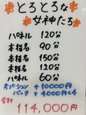 とろとろな
女神たち
パネル 120分
本指名 90分
本指名 150分
本指名 120分
パネル 60分
オプション + 10000円
パック + 4000円×4
合計
114,000円